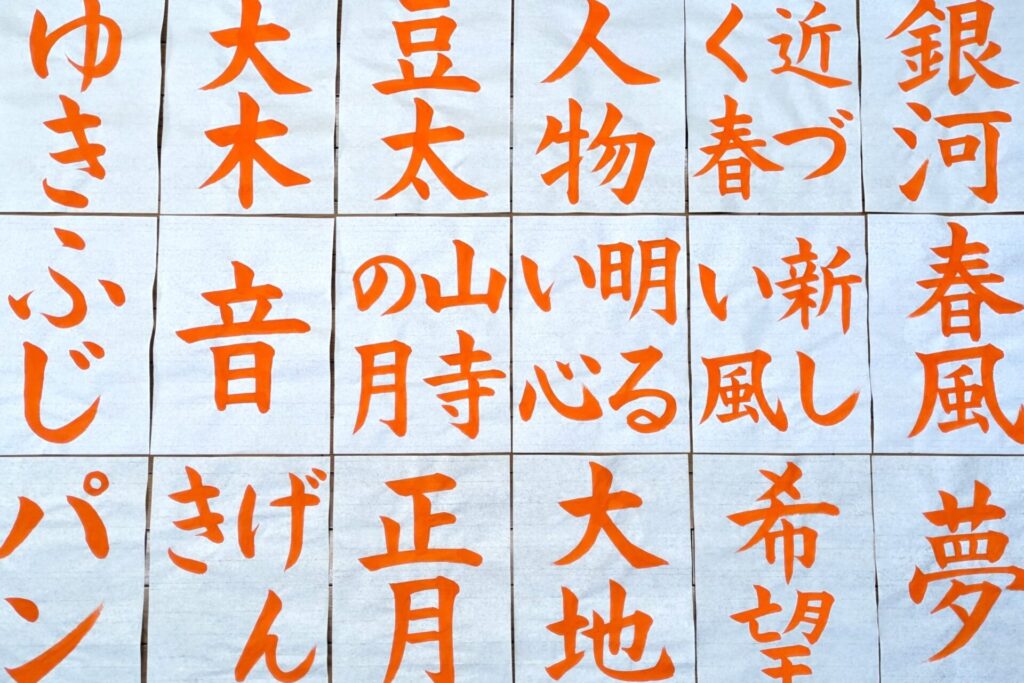 ゆき
大木
豆太
人物
近づく春
銀河
ふじ
音
山寺の月
明るい心
新しい風
春風
パン
げんき
正月
大地
希望
夢